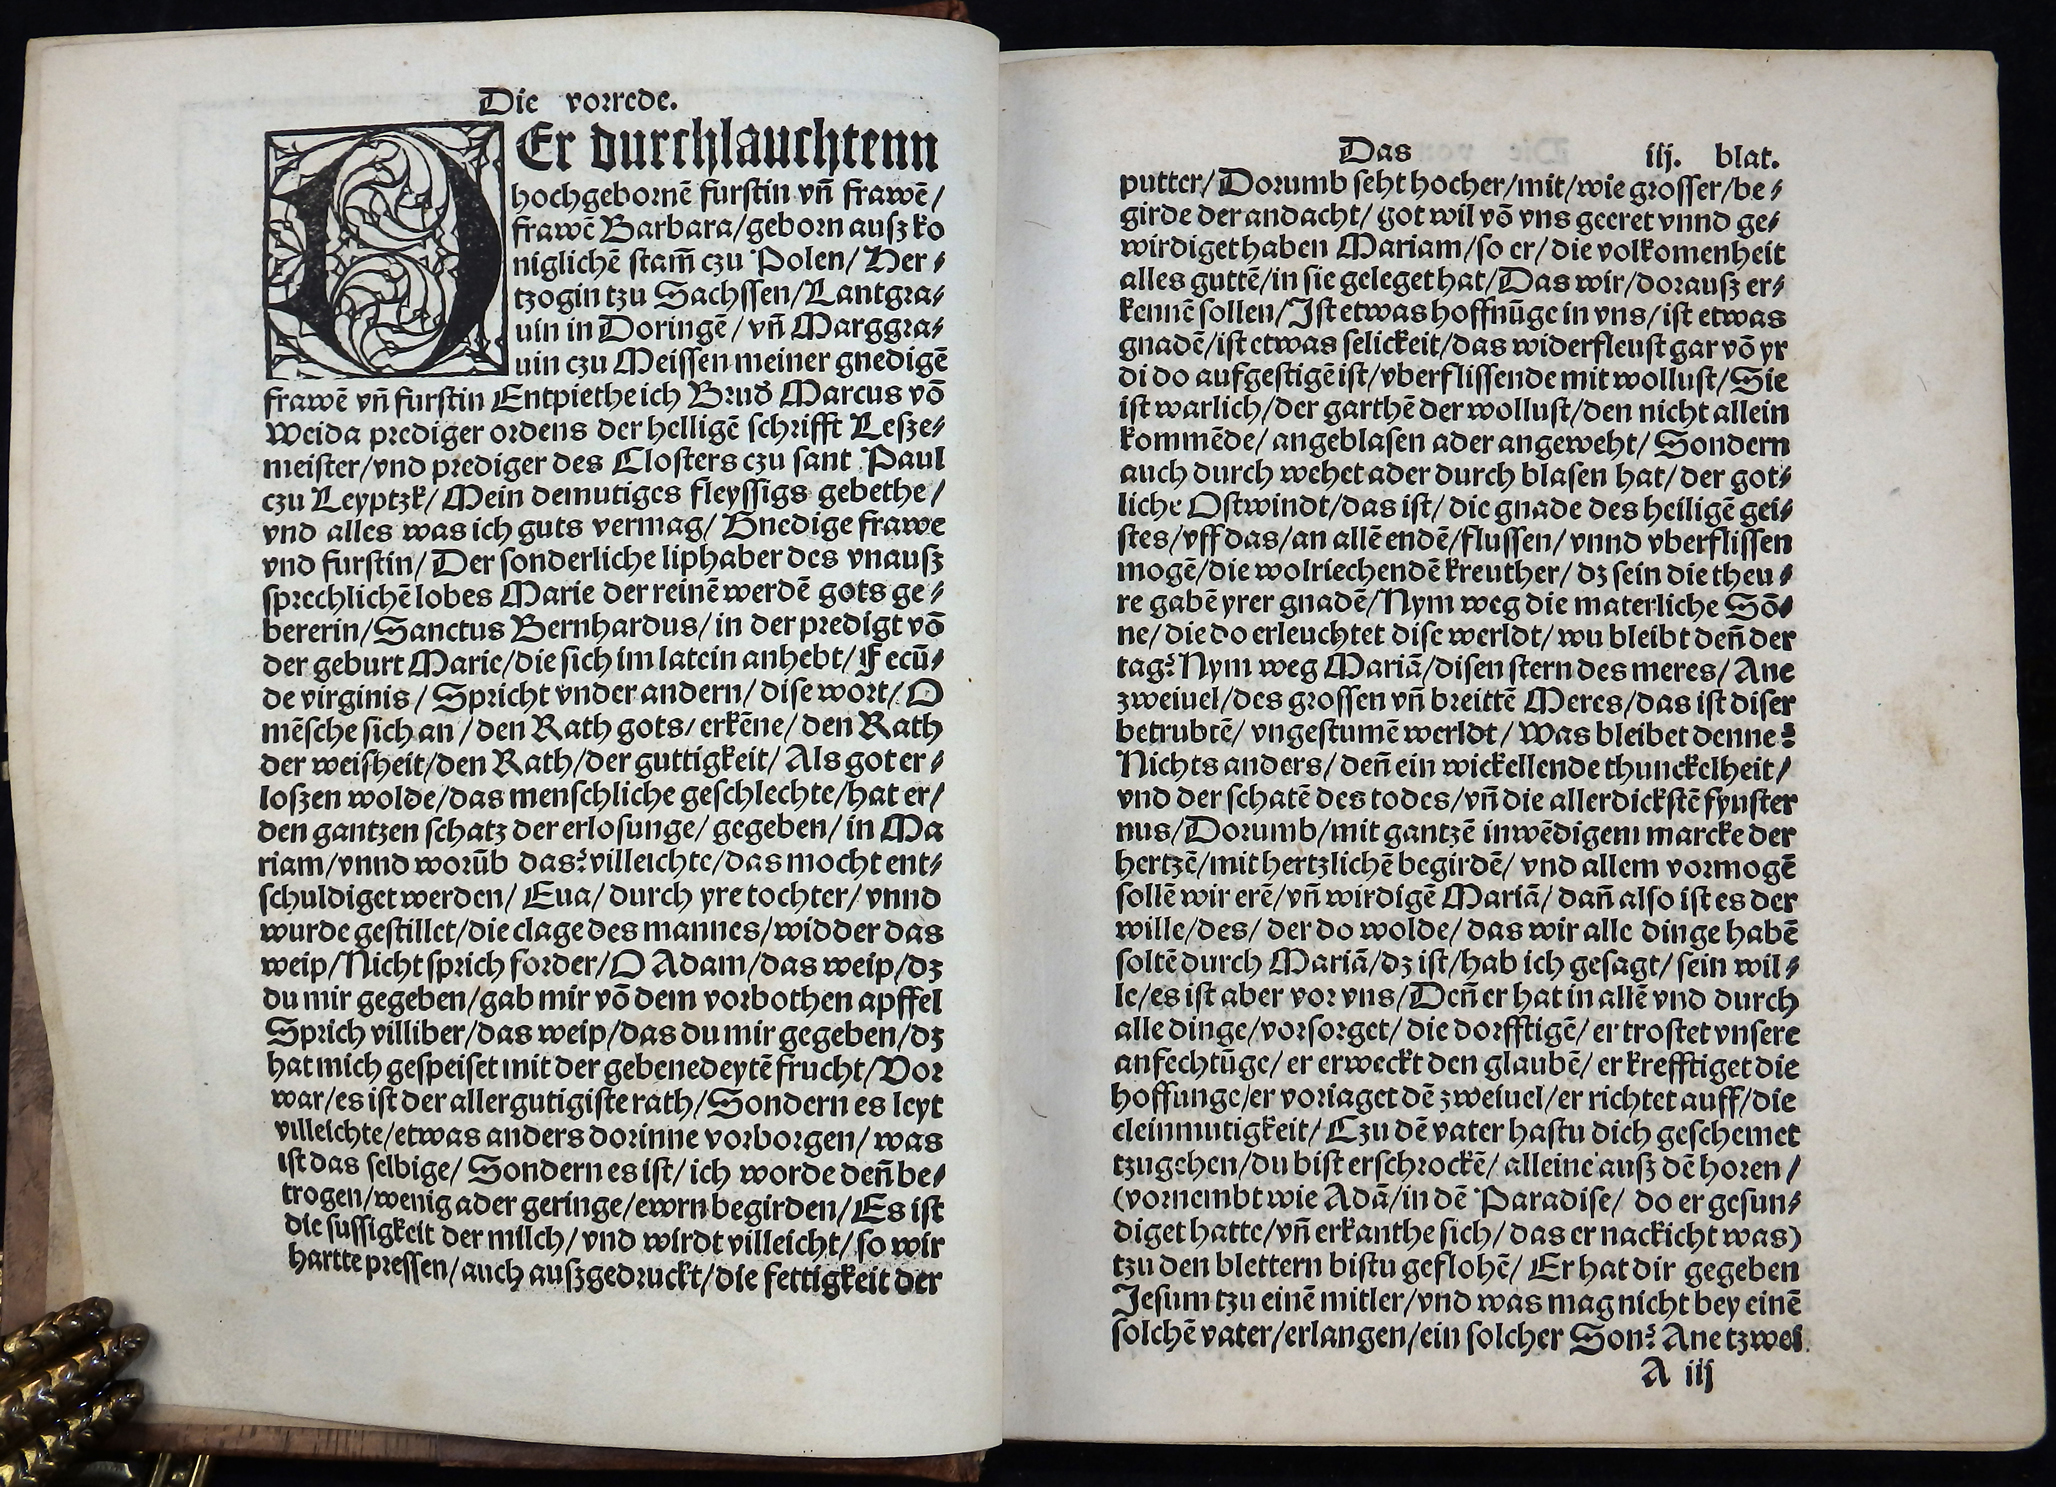 Die vorrede.
DEr durchlauchtenn
hochgebornē furstin vn̄ frawē/
frawē Barbara/geborn ausz ko
niglichē stam̄ czu Polen/Her⸗
tzogin tzu Sachssen/Lantgra⸗
uin in Doringē/vn̄ Marggra⸗
uin czu Meissen meiner gnedigē
frawē vn̄ furstin Entpiethe ich Brud̕ Marcus vō
Weida prediger ordens der helligē schrifft Lesze⸗
meister/vnd prediger des Closters czu sant Paul
czu Leyptzk/Mein demutiges fleyssigs gebethe/
vnd alles was ich guts vermag/Gnedige frawe
vnd furstin/Der sonderliche liphaber des vnausz
sprechlichē lobes Marie der reinē werdē gots ge⸗
bererin/Sanctus Bernhardus/in der predigt vō
der geburt Marie/die sich im latein anhebt/Fecū⸗
de virginis/Spricht vnder andern/dise wort/O
mēsche sich an/den Rath gots/erkēne/den Rath
der weisheit/den Rath/der guttigkeit/Als got er⸗
loszen wolde/das menschliche geschlechte/hat er/
den gantzen schatz der erlosunge/gegeben/in Ma
riam/vnnd worūb das? villeichte/das mocht ent⸗
schuldiget werden/Eua/durch yre tochter/vnnd
wurde gestillet/die clage des mannes/widder das
weip/Nicht sprich forder/O Adam/das weip/dz
du mir gegeben/gab mir vō dem vorbothen apffel
Sprich villiber/das weip/das du mir gegeben/dz
hat mich gespeiset mit der gebenedeytē frucht/Vor
war/es ist der allergutigiste rath/Sondern es leyt
villeichte/etwas anders dorinne vorborgen/was
ist das selbige/Sondern es ist/ich worde den̄ be⸗
trogen/wenig ader geringe/ewrn begirden/Es ist
die sussigkeit der milch/vnd wirdt villeicht/so wir
hartte pressen/auch auszgedruckt/die fettigkeit der
Das iij. blat.
putter/Dorumb seht hocher/mit/wie grosser/be⸗
girde der andacht/got wil vō vns geeret vnnd ge⸗
wirdiget haben Mariam/so er/die volkomenheit
alles guttē/in sie geleget hat/Das wir/dorausz er⸗
kennē sollen/Ist etwas hoffnūge in vns/ist etwas
gnadē/ist etwas selickeit/das widerfleust gar vō yr
di do aufgestigē ist/vberflissende mit wollust/Sie
ist warlich/der garthē der wollust/den nicht allein
kommēde/angeblasen ader angeweht/Sondern
auch durch wehet ader durch blasen hat/der got⸗
liche Ostwindt/das ist/die gnade des heiligē gei⸗
stes/vff das/an allē endē/flussen/vnnd vberflissen
mogē/die wolriechendē kreuther/dz sein die theu⸗
re gabē yrer gnadē/Nym weg die materliche Sō⸗
ne/die do erleuchtet dise werldt/wu bleibt den̄ der
tag? Nym weg Mariā/disen stern des meres/Ane
zweiuel/des grossen vn̄ breittē Meres/das ist diser
betrubtē/vngestumē werldt/Was bleibet denne?
Nichts anders/den̄ ein wickellende thunckelheit/
vnd der schatē des todes/vn̄ die allerdickstē fynster
nus/Dorumb/mit gantzē inwēdigem marcke der
hertzē/mit hertzlichē begirdē/vnd allem vormogē
sollē wir erē/vn̄ wirdigē Mariā/dan̄ also ist es der
wille/des/der do wolde/das wir alle dinge habē
soltē durch Mariā/dz ist/hab ich gesagt/sein wil⸗
le/es ist aber vor vns/Den̄ er hat in allē vnd durch
alle dinge/vorsorget/die dorfftigē/er trostet vnsere
anfechtūge/er erweckt den glaubē/er krefftiget die
hoffunge/er voriaget dē zweiuel/er richtet auff/die
cleinmutigkeit/Czu dē vater hastu dich geschemet
tzugehen/du bist erschrockē/alleine ausz dē horen/
(vornembt wie Adā/in dē Paradise/do er gesun⸗
diget hatte/vn̄ erkanthe sich/das er nackicht was)
tzu den blettern bistu geflohē/Er hat dir gegeben
Jesum tzu einē mitler/vnd was mag nicht bey einē
solchē vater/erlangen/ein solcher Son? Ane tzwei
A iij